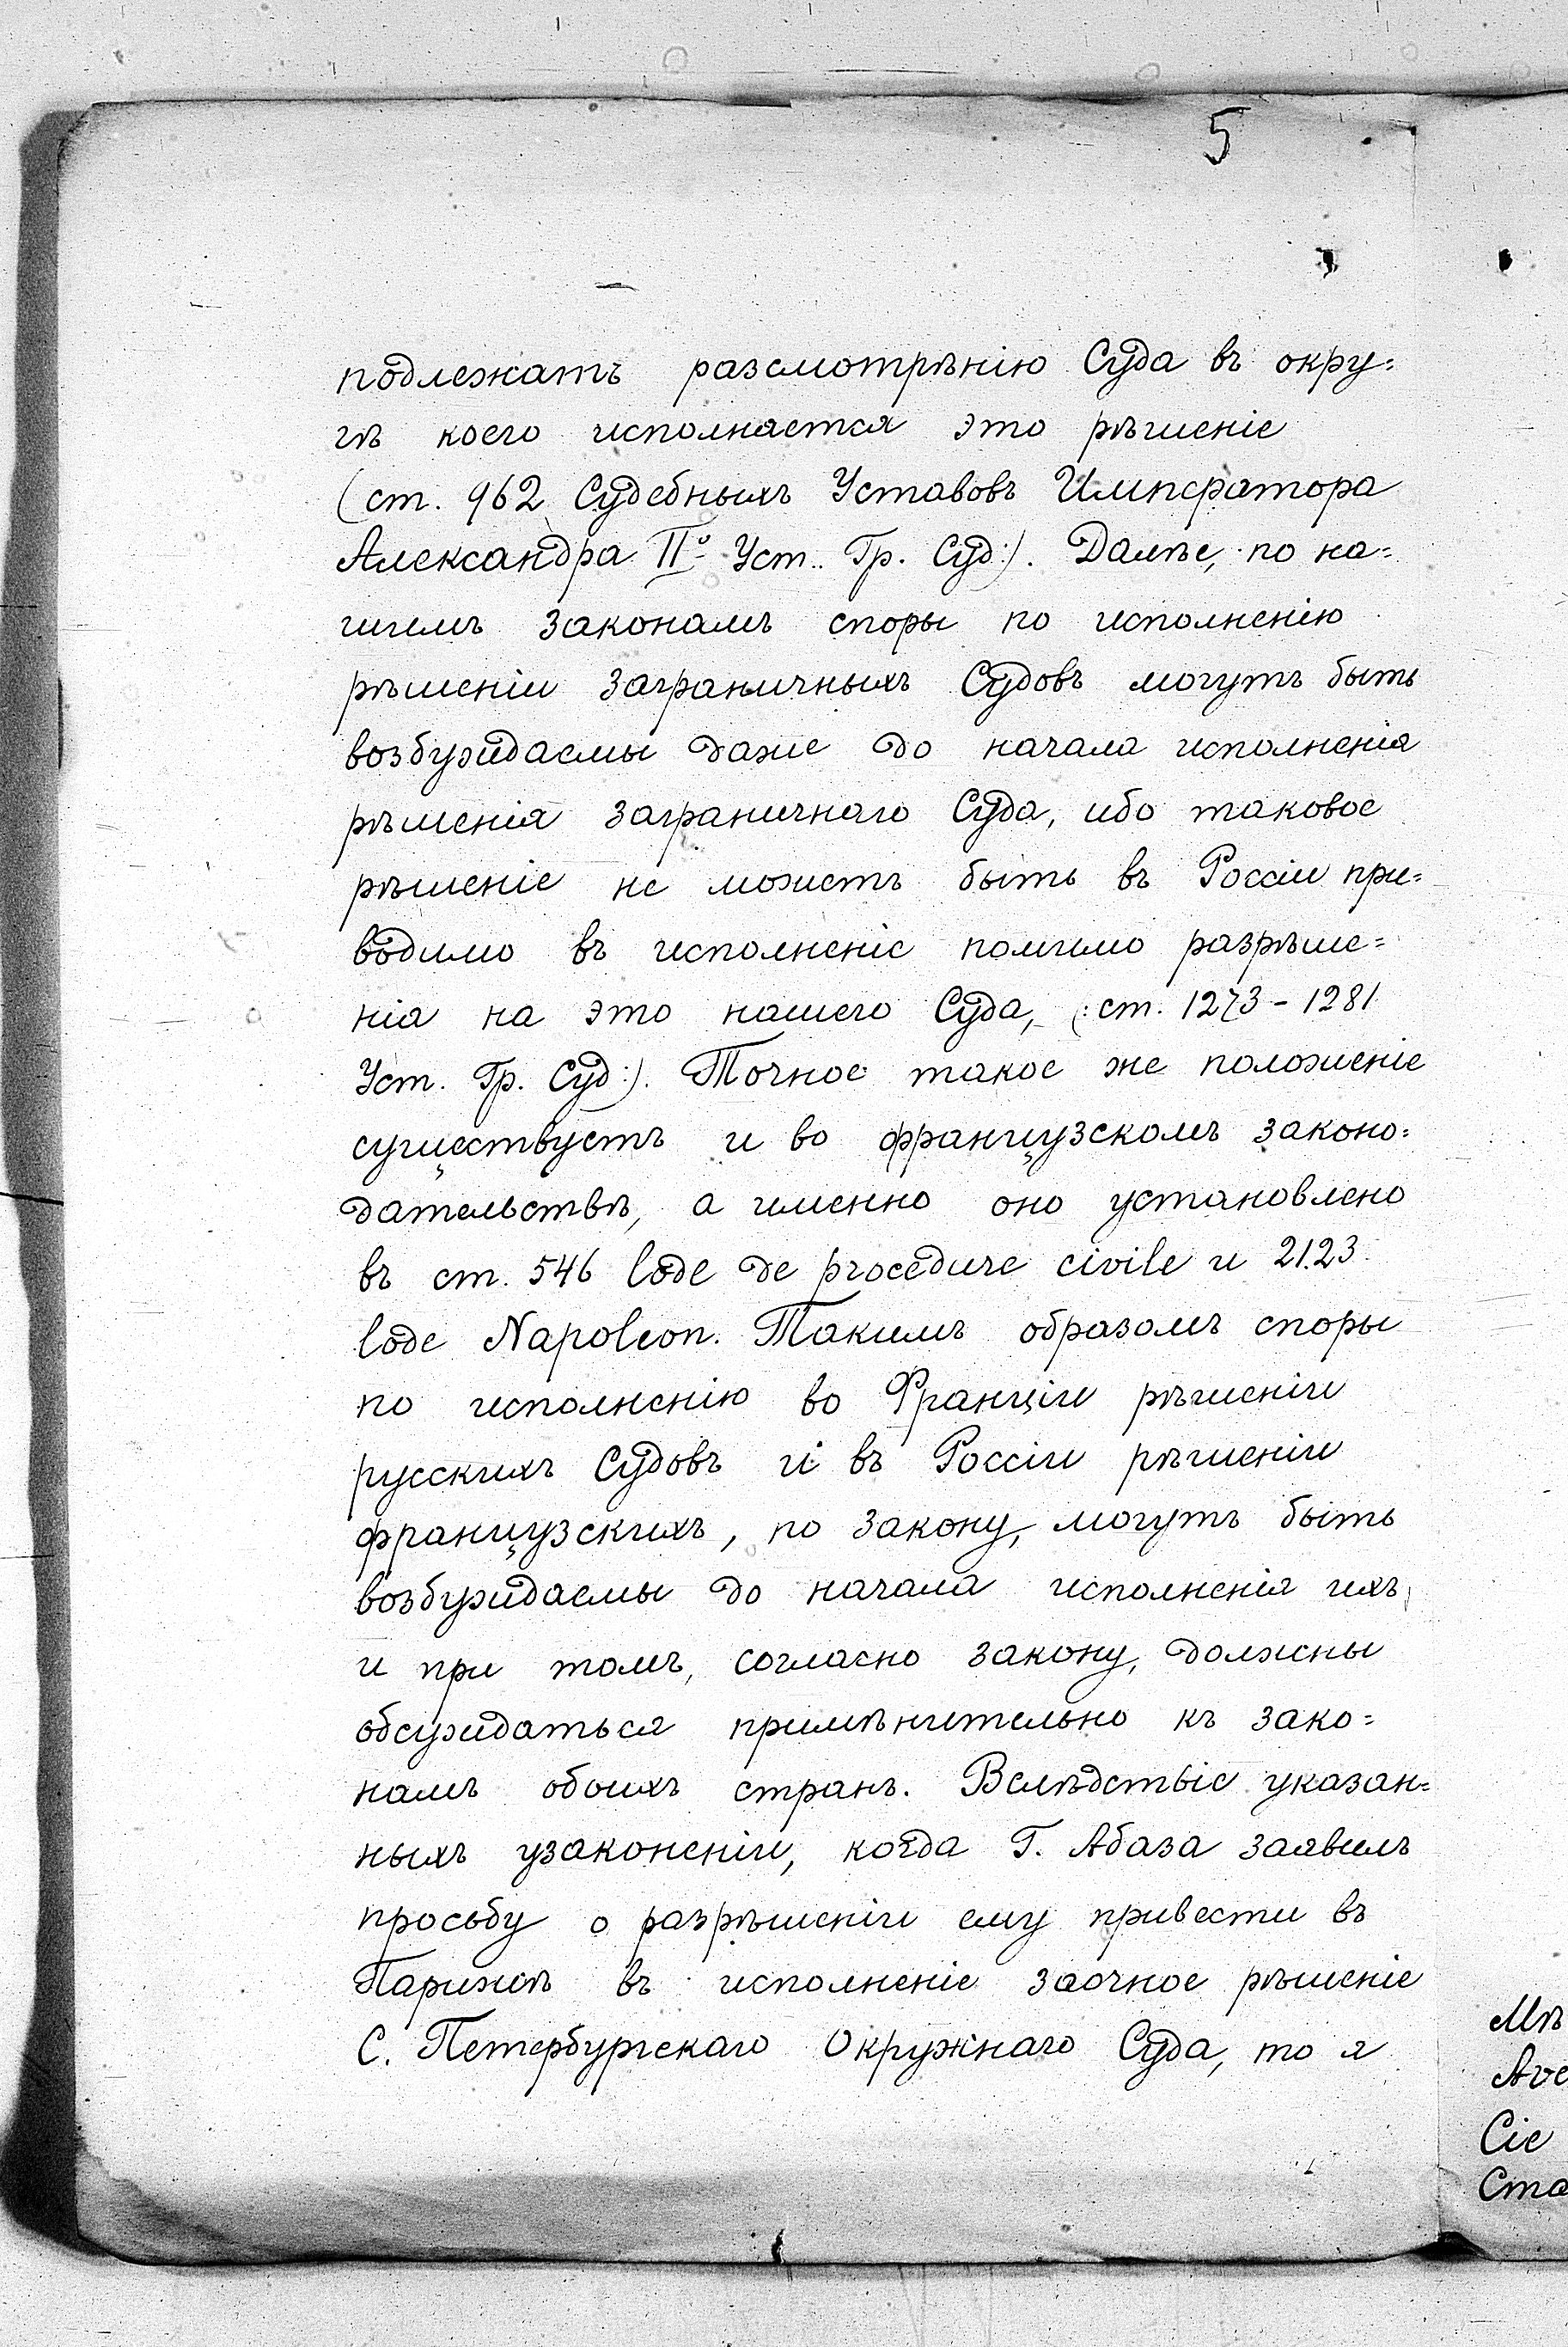 5
подлежатъ разсмотрѣнію Суда въ окру=
гѣ коего исполняется это рѣшеніе
(ст. 962 Судебныхъ Уставовъ Императора
Александра IIо Уст. Гр. Суд:). Далѣе, по на=
шимъ законамъ споры по исполненію
рѣшеніи заграничныхъ Судовъ могутъ быть
возбуждаемы даже до начала исполненія
рѣшенія заграничнаго Суда, ибо таковое
рѣшеніе не можетъ быть въ Россіи при=
водимо въ исполненіе помимо разрѣше=
нія на это нашего Суда, (:ст. 1273-1281
Уст. Гр. Суд:). Точное такое же положеніе
существуетъ и во французскомъ законо=
дательствѣ, а именно оно установлено
въ ст. 546 Code de procedure civile и 2123
Code Napoleon. Такимъ образомъ споры
по исполненію во Франціи рѣшеніи
русскихъ Судовъ и въ Россіи рѣшеніи
французскихъ, по закону, могутъ быть
возбуждаемы до начала исполненія ихъ,
и при томъ, согласно закону, должны
обсуждаться примѣнительно къ зако=
намъ обоихъ странъ. Вслѣдствіе указан=
ныхъ узаконеніи, когда Г. Абаза заявилъ
просьбу о разрѣшеніи ему привести въ
Парижѣ въ исполненіе заочное рѣшеніе
С. Петербургскаго Окружнаго Суда, то я
Мѣ
Аve
Сіе
Ста